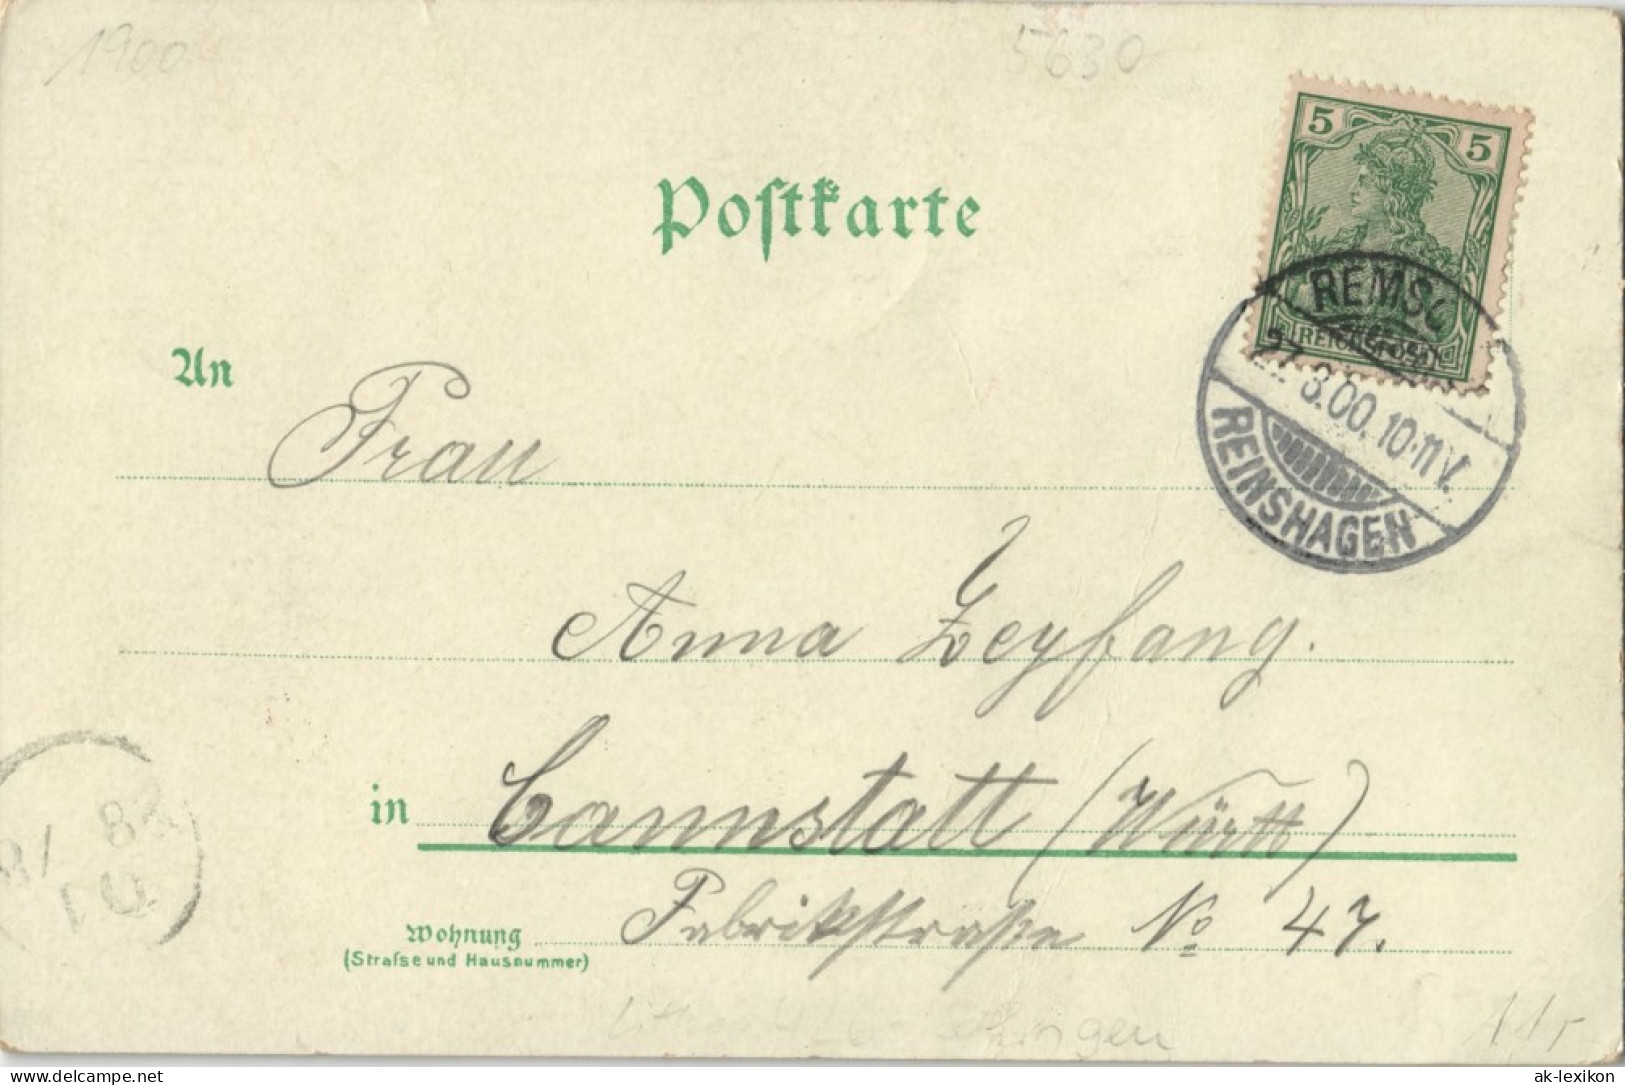 1900
5630
5 5
REICHSPOST
Postkarte
REMSC
27.3.00.10-11V.
REINSHAGEN
An Frau
Anna Zeyfang.
in Cannstatt (Württ)
Wohnung Fabrikstraße No 47.
(Strafse und Hausnummer)
www.delcampe.net
ak-lexikon